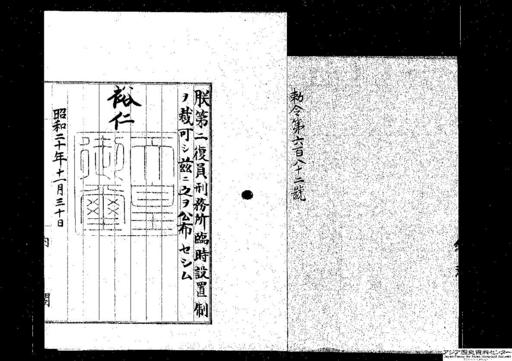 勅令第六百八十二號
朕第二復員刑務所臨時設置制
ヲ裁可シ茲ニ之ヲ公布セシム
裕仁
天皇御璽
昭和二十年十一月三十日
内閣
アジア歴史資料センター